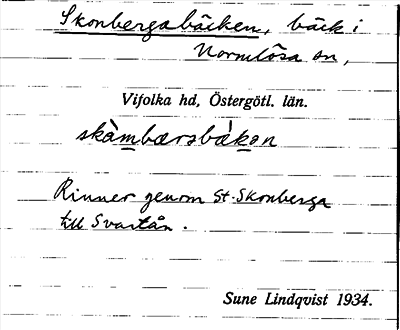 Skonbergabäcken, bäck i
Normlösa sn,
Vifolka hd, Östergötl. län.
skàmbærsbækən
Rinner genom St. Skonberga
till Svartån.
Sune Lindqvist 1934.